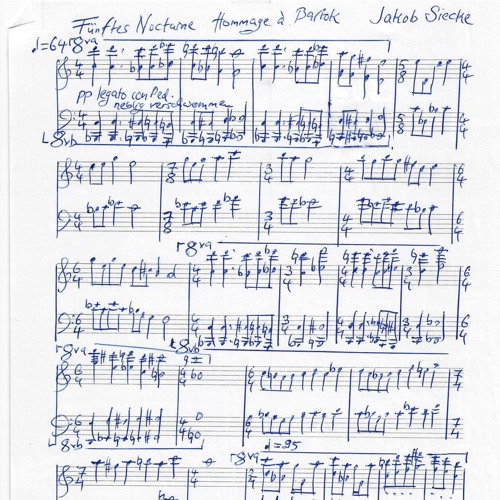 Fünftes Nocturne Hommage à Bartók Jakob Siecke
♩=64 8va
pp legato con Ped.
neblig verschwommen
8vb
8va
8va 8vb
8vb ♩=95
8va